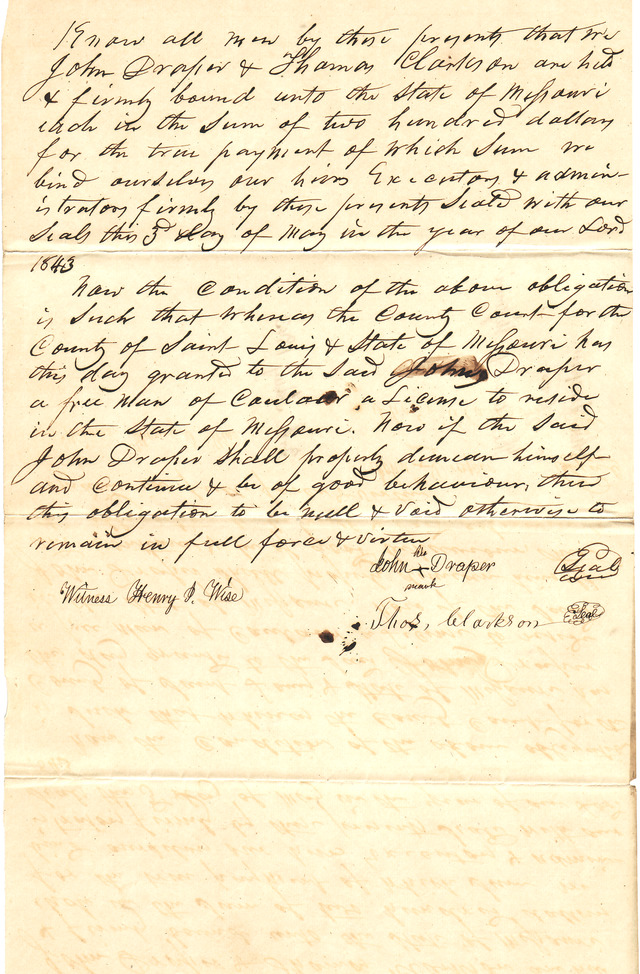 Know all men by these presents that we
John Draper & Thomas Clarkson are held
& firmly bound unto the State of Missouri
each in the sum of two hundred dollars
for the true payment of which sum we
bind ourselves our heirs Executors & admin-
istrators firmly by these presents Seald with our
Seals this 3d day of May in the year of our Lord
1843
Now the Condition of the above obligation
is Such that Whereas the County Court for the
County of Saint Louis & State of Missouri has
this day granted to the Said John Draper
a free man of Coulaur a License to reside
in the State of Missouri. Now if the Said
John Draper Shall properly demean himself
and Continue & be of good behaviour, then
this obligation to be null & Void otherwise to
remain in full force & virtue
John his x mark Draper Seal
Witness Henry P. Wise
Thos. Clarkson Seal